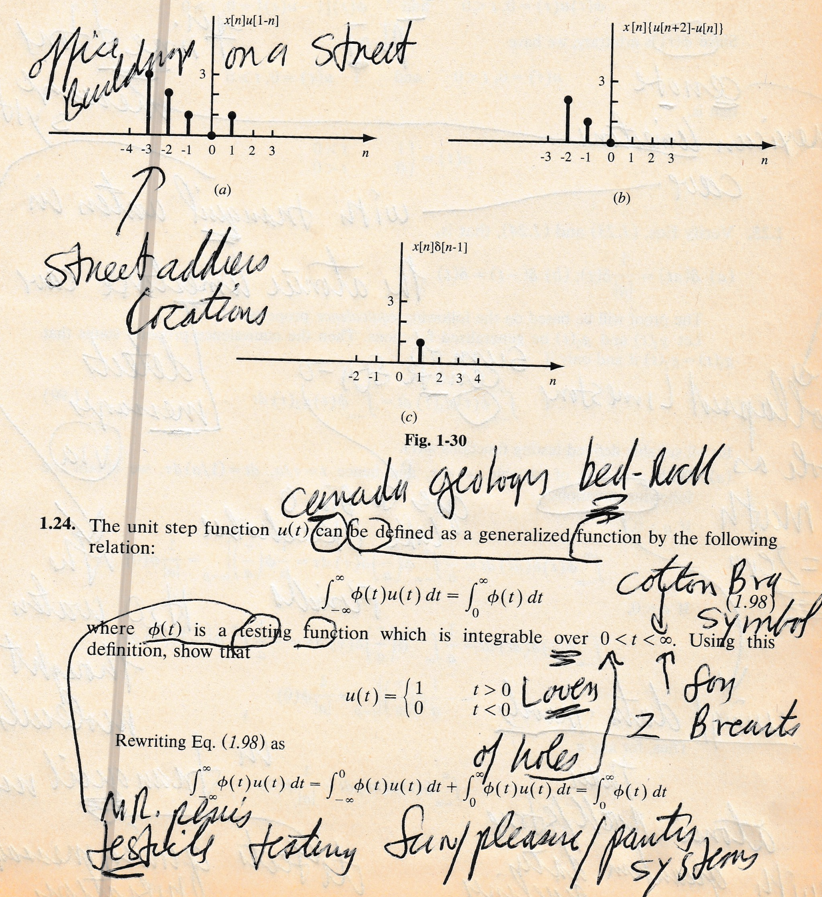 x[n]u[1-n]
x[n]{u[n+2]-u[n]}
office Buildings on a Street
3
3
-4 -3 -2 -1 0 1 2 3 n
-3 -2 -1 0 1 2 3 n
(a)
(b)
Street address
Locations
x[n]δ[n-1]
3
-2 -1 0 1 2 3 4 n
(c)
Fig. 1-30
Canada geology bed-Rock
1.24. The unit step function u(t) can be defined as a generalized function by the following
relation:
∫_{-∞}^{∞} φ(t)u(t) dt = ∫_{0}^{∞} φ(t) dt
(1.98)
cotton Bra
Symbol
where φ(t) is a testing function which is integrable over 0 < t < ∞. Using this
definition, show that
u(t) = {1 t > 0
0 t < 0
Lover
of holes
for
2 Breasts
Rewriting Eq. (1.98) as
∫_{-∞}^{∞} φ(t)u(t) dt = ∫_{-∞}^{0} φ(t)u(t) dt + ∫_{0}^{∞} φ(t)u(t) dt = ∫_{0}^{∞} φ(t) dt
MR. penis
testicle testing Fun/pleasure/panty
systems